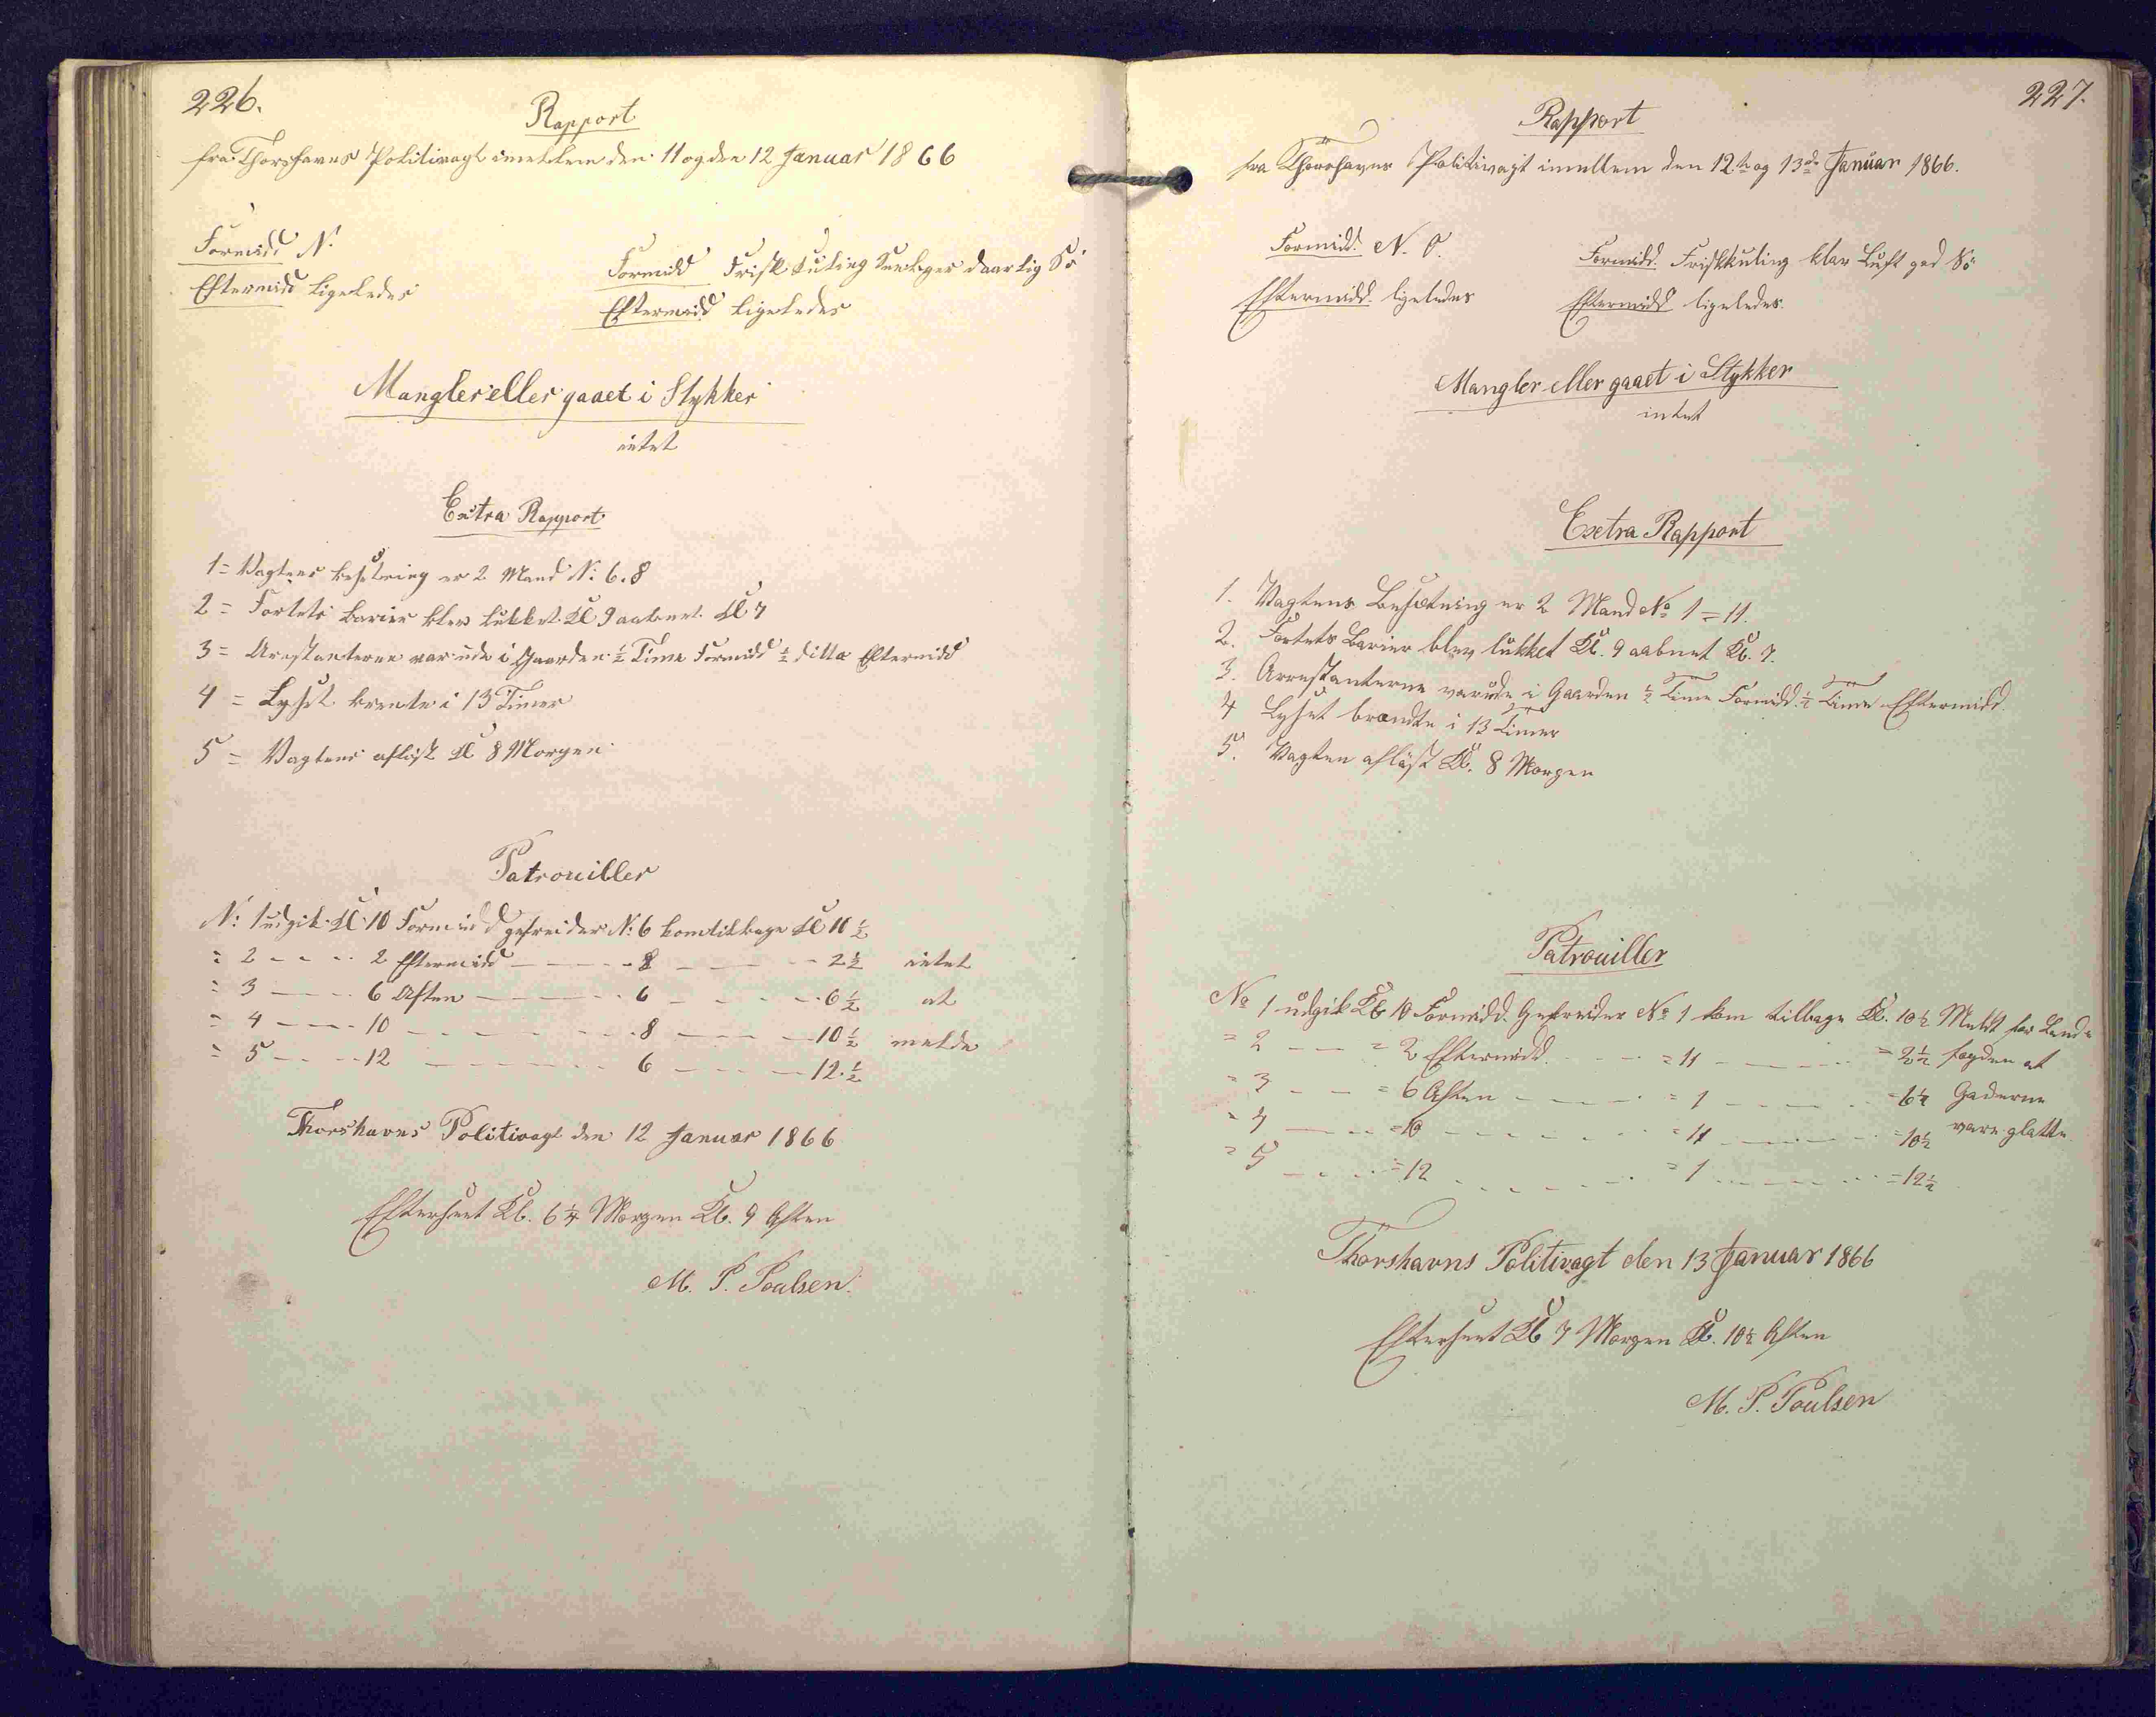 226.
Rapport
fra Thorshavns Politivagt imellem den 11 og den 12 Januar 1866
Formidd N.
Eftermid ligeledes
Formidd Frisk Kuling Sneeger daarlig Sö
Eftermidd ligeledes
Mangler eller gaaet i Stykker
intet
Extra Rapport
1 = Vagtens besetning er 2 Mand N: 6. 8
2 = Fortets barier blev lukket Kl 9 aabnet Kl 7
3 = Arestanterne var ude i Gaarden ½ Time Formidd ½ ditto Eftermidd
4 = Lyset brente i 13 Timer
5 = Vagtens aflöst Kl 8 Morgen
Patrouiller
N: 1 udgik Kl 10 Formidd gefreider N: 6 kom tilbage Kl 10 ½
= 2 - - - - 2 Eftermidd - - - - 8 - - - - 2 ½ intet
= 3 - - - - 6 Aften - - - - 6 - - - - 6 ½ at
= 4 - - - - 10 - - - - 8 - - - - 10 ½ melde
= 5 - - - - 12 - - - - 6 - - - - 12 ½
Thorshavns Politivagt den 12 Januar 1866
Efterseet Kl. 6 ¼ Morgen Kl. 9 Aften
M. P. Poulsen.
227.
Rapport
fra Thorshavns Politivagt imellem den 12te og 13de Januar 1866.
Formidd. N. O.
Eftermidd. ligeledes
Formidd. Friskkuling klar Luft god Sö
Eftermidd ligeledes.
Mangler eller gaaet i Stykker
intet
Exetra Rapport
1. Vagtens Besætning er 2 Mand No 1 = 11.
2. Fortets Barier blev lukket Kl. 9 aabnet Kl. 7.
3. Arrestanterne var ude i Gaarden ½ Time Formidd. ½ Time Eftermidd.
4 Lyset brændte i 13 Timer
5. Vagten aflöst Kl. 8 Morgen
Patrouiller
No 1 udgik Kl. 10 Formidd. Gefreider No 1 kom tilbage Kl. 10 ½ Meldt for Land=
= 2 - - - = 2 Eftermidd. - - - = 11 - - - - = 2 ½ fogden at
= 3 - - - = 6 Aften - - - - = 1 - - - - = 6 ½ Gaderne
= 4 - - - = 10 - - - - = 11 - - - - = 10 ½ vare glatte.
= 5 - - - = 12 - - - - = 1 - - - - = 12 ½
Thorshavns Politivagt den 13 Januar 1866
Efterseet Kl 7 Morgen Kl. 10 ½ Aften
M. P. Poulsen